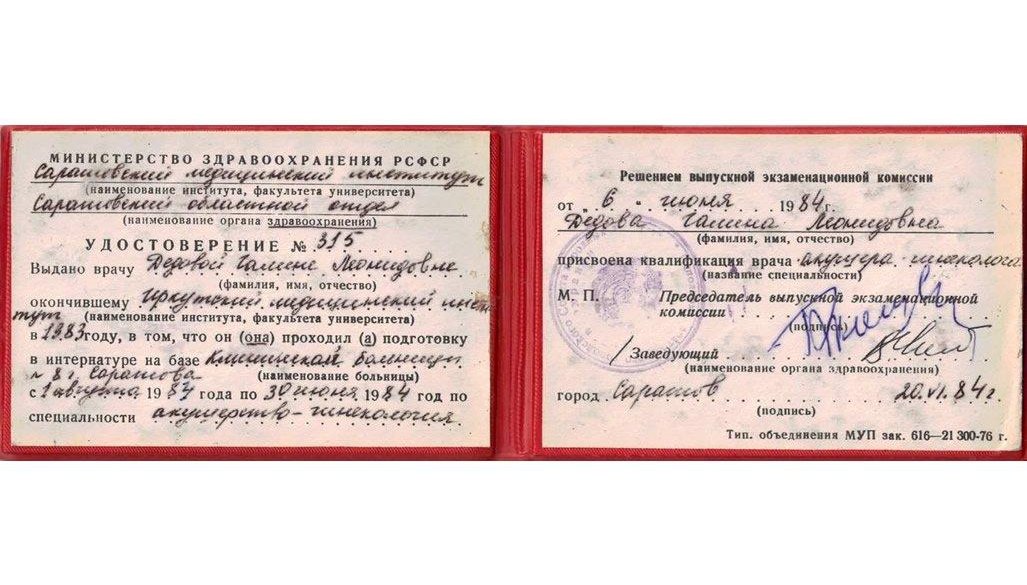 МИНИСТЕРСТВО ЗДРАВООХРАНЕНИЯ РСФСР
Саратовский медицинский институт
(наименование института, факультета университета)
Саратовский областной отдел
(наименование органа здравоохранения)
УДОСТОВЕРЕНИЕ № 315
Выдано врачу Дедовой Галине Леонидовне
(фамилия, имя, отчество)
окончившему Иркутский медицинский инсти
тут (наименование института, факультета университета)
в 1983 году, в том, что он (она) проходил (а) подготовку
в интернатуре на базе Клинической больницы
№ 8 г. Саратова (наименование больницы)
с 1 августа 1983 года по 30 июня 1984 год по
специальности акушерство-гинекология.
Решением выпускной экзаменационной комиссии
от „ 6 " июня 1984 г.
Дедова Галина Леонидовна
(фамилия, имя, отчество)
присвоена квалификация врача акушера-гинеколога
(название специальности)
М. П. Председатель выпускной экзаменационной
комиссии
(подпись)
Заведующий
(наименование органа здравоохранения)
город Саратов 20.VI.84 г.
(подпись)
Тип. объединения МУП зак. 616—21 300-76 г.